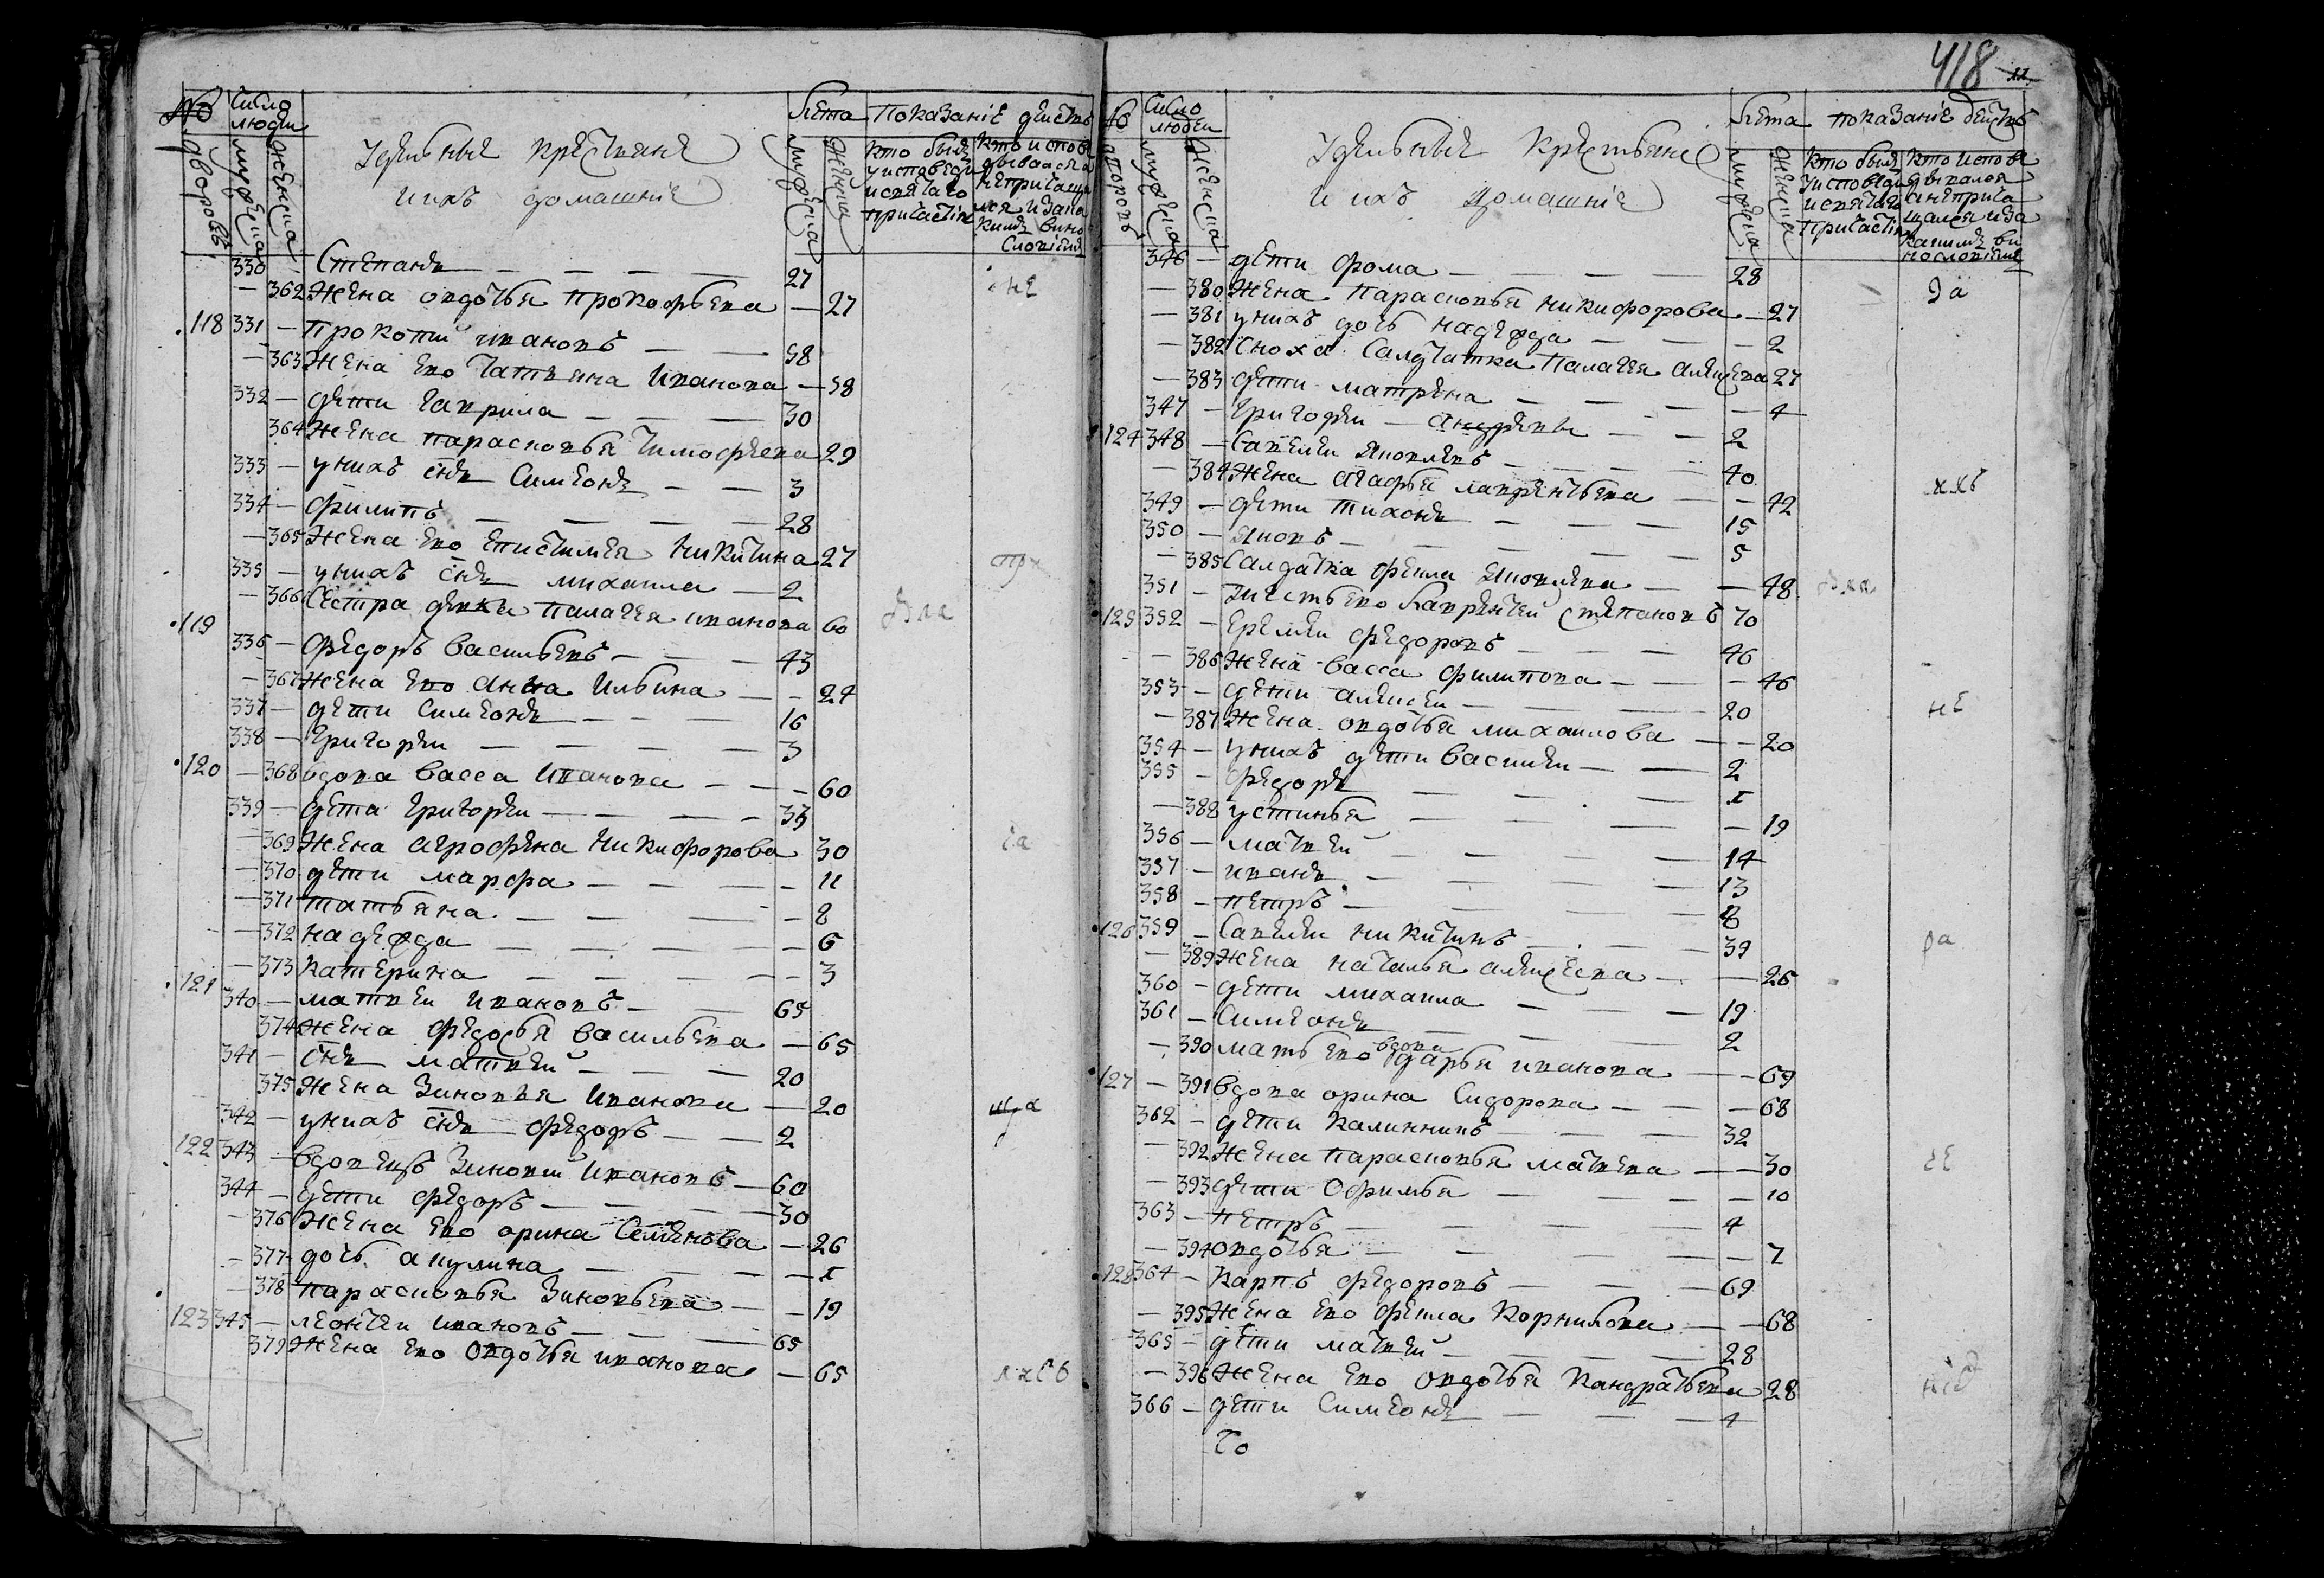 № дворовъ
Число людей
мужеска
женска
Удельныя крестьяне
и ихъ домашніе
Лета
мужеска
женска
Показаніе действ
кто былъ у исповеди и святаго причастія
кто исповедывался а непричащался и за какимъ винословіемъ
330 — Степанъ — 27
— 362 жена овдотья прокофьева — 27 не
118 331 — прокопий ивановъ — 58
— 363 жена ево татьяна иванова — 58
332 — дети гаврила — 30
364 жена парасковья тимофеева 29
333 — у нихъ снъ симеонъ — 3
334 — филипъ — 28
— 365 жена ево епистимея никитина 27
335 — у нихъ снъ михаила — 2 при
— 366 сестра девка палагея иванова 60
119 336 — федоръ васильевъ — 43
— 367 жена ево анна ильина — 24
337 — дети симеонъ — 16
338 — григорей — 3
120 — 368 вдова васса иванова — 60
339 — дета григорей — 33
— 369 жена агрофена никифорова 30 са
— 370 дети марфа — 11
— 371 татьяна — 8
— 372 надежда — 6
— 373 катерина — 3
121 340 — матвей ивановъ — 65
374 жена федосья васильева — 65
341 — снъ матвей — 20
375 жена зиновья иванова — 20
342 — у нихъ снъ федоръ — 2 ща
122 343 — вдовецъ зиновий ивановъ — 60
344 — дети федоръ — 30
— 376 жена ево орина семенова — 26
— 377 дочь акулина — 1
— 378 парасковья зиновьева — 19
123 345 — леонтей ивановъ — 65
379 жена ево овдотья иванова — 65
418
№ дворовъ
Число людей
мужеска
женска
Удельныя крестьяне
и ихъ домашніе
Лета
мужеска
женска
показаніе действ
кто былъ у исповеди и святаго причастія
кто исповедывался а непричащался и за какимъ винословіемъ
346 — дети фома — 28
— 380 жена парасковья никифорова — 27
— 381 у нихъ дочь надежда — 2
— 382 сноха салдатка палагея алексеева 27
— 383 дети матрена — 4
347 — григорей — андреевы — 2
124 348 — савелей яковлевъ — 40
— 384 жена агафья лаврентьева — 42
349 — дети тихонъ — 15
350 — яковъ — 5
— 385 салдатка фекла яковлева — 48
351 — тесть ево лаврентей степановъ 70
125 352 — еремей федоровъ — 46
— 386 жена васса филипова — 46
353 — дети алексей — 20 не
— 387 жена овдотья михаилова — 20
354 — у нихъ дети василей — 2
355 — федоръ — 1
— 388 устинья — 19
356 — матвей — 14
357 — иванъ — 13
358 — петръ — 8
126 359 — савелей никитинъ — 39
— 389 жена наталья алексеева — 26
360 — дети михаила — 19
361 — симеонъ — 2
— 390 мать ево вдова дарья иванова — 69
127 — 391 вдова орина сидорова — 68
362 — дети калинникъ — 32
— 392 жена парасковья матвеева — 30
— 393 дети офимья — 10
363 — петръ — 4
— 394 овдотья — 7
128 364 — карпъ федоровъ — 69
— 395 жена ево фекла корнилова — 68
365 — дети матвей — 28
— 396 жена ево овдотья кандратьева 28
366 — дети симеонъ — 4